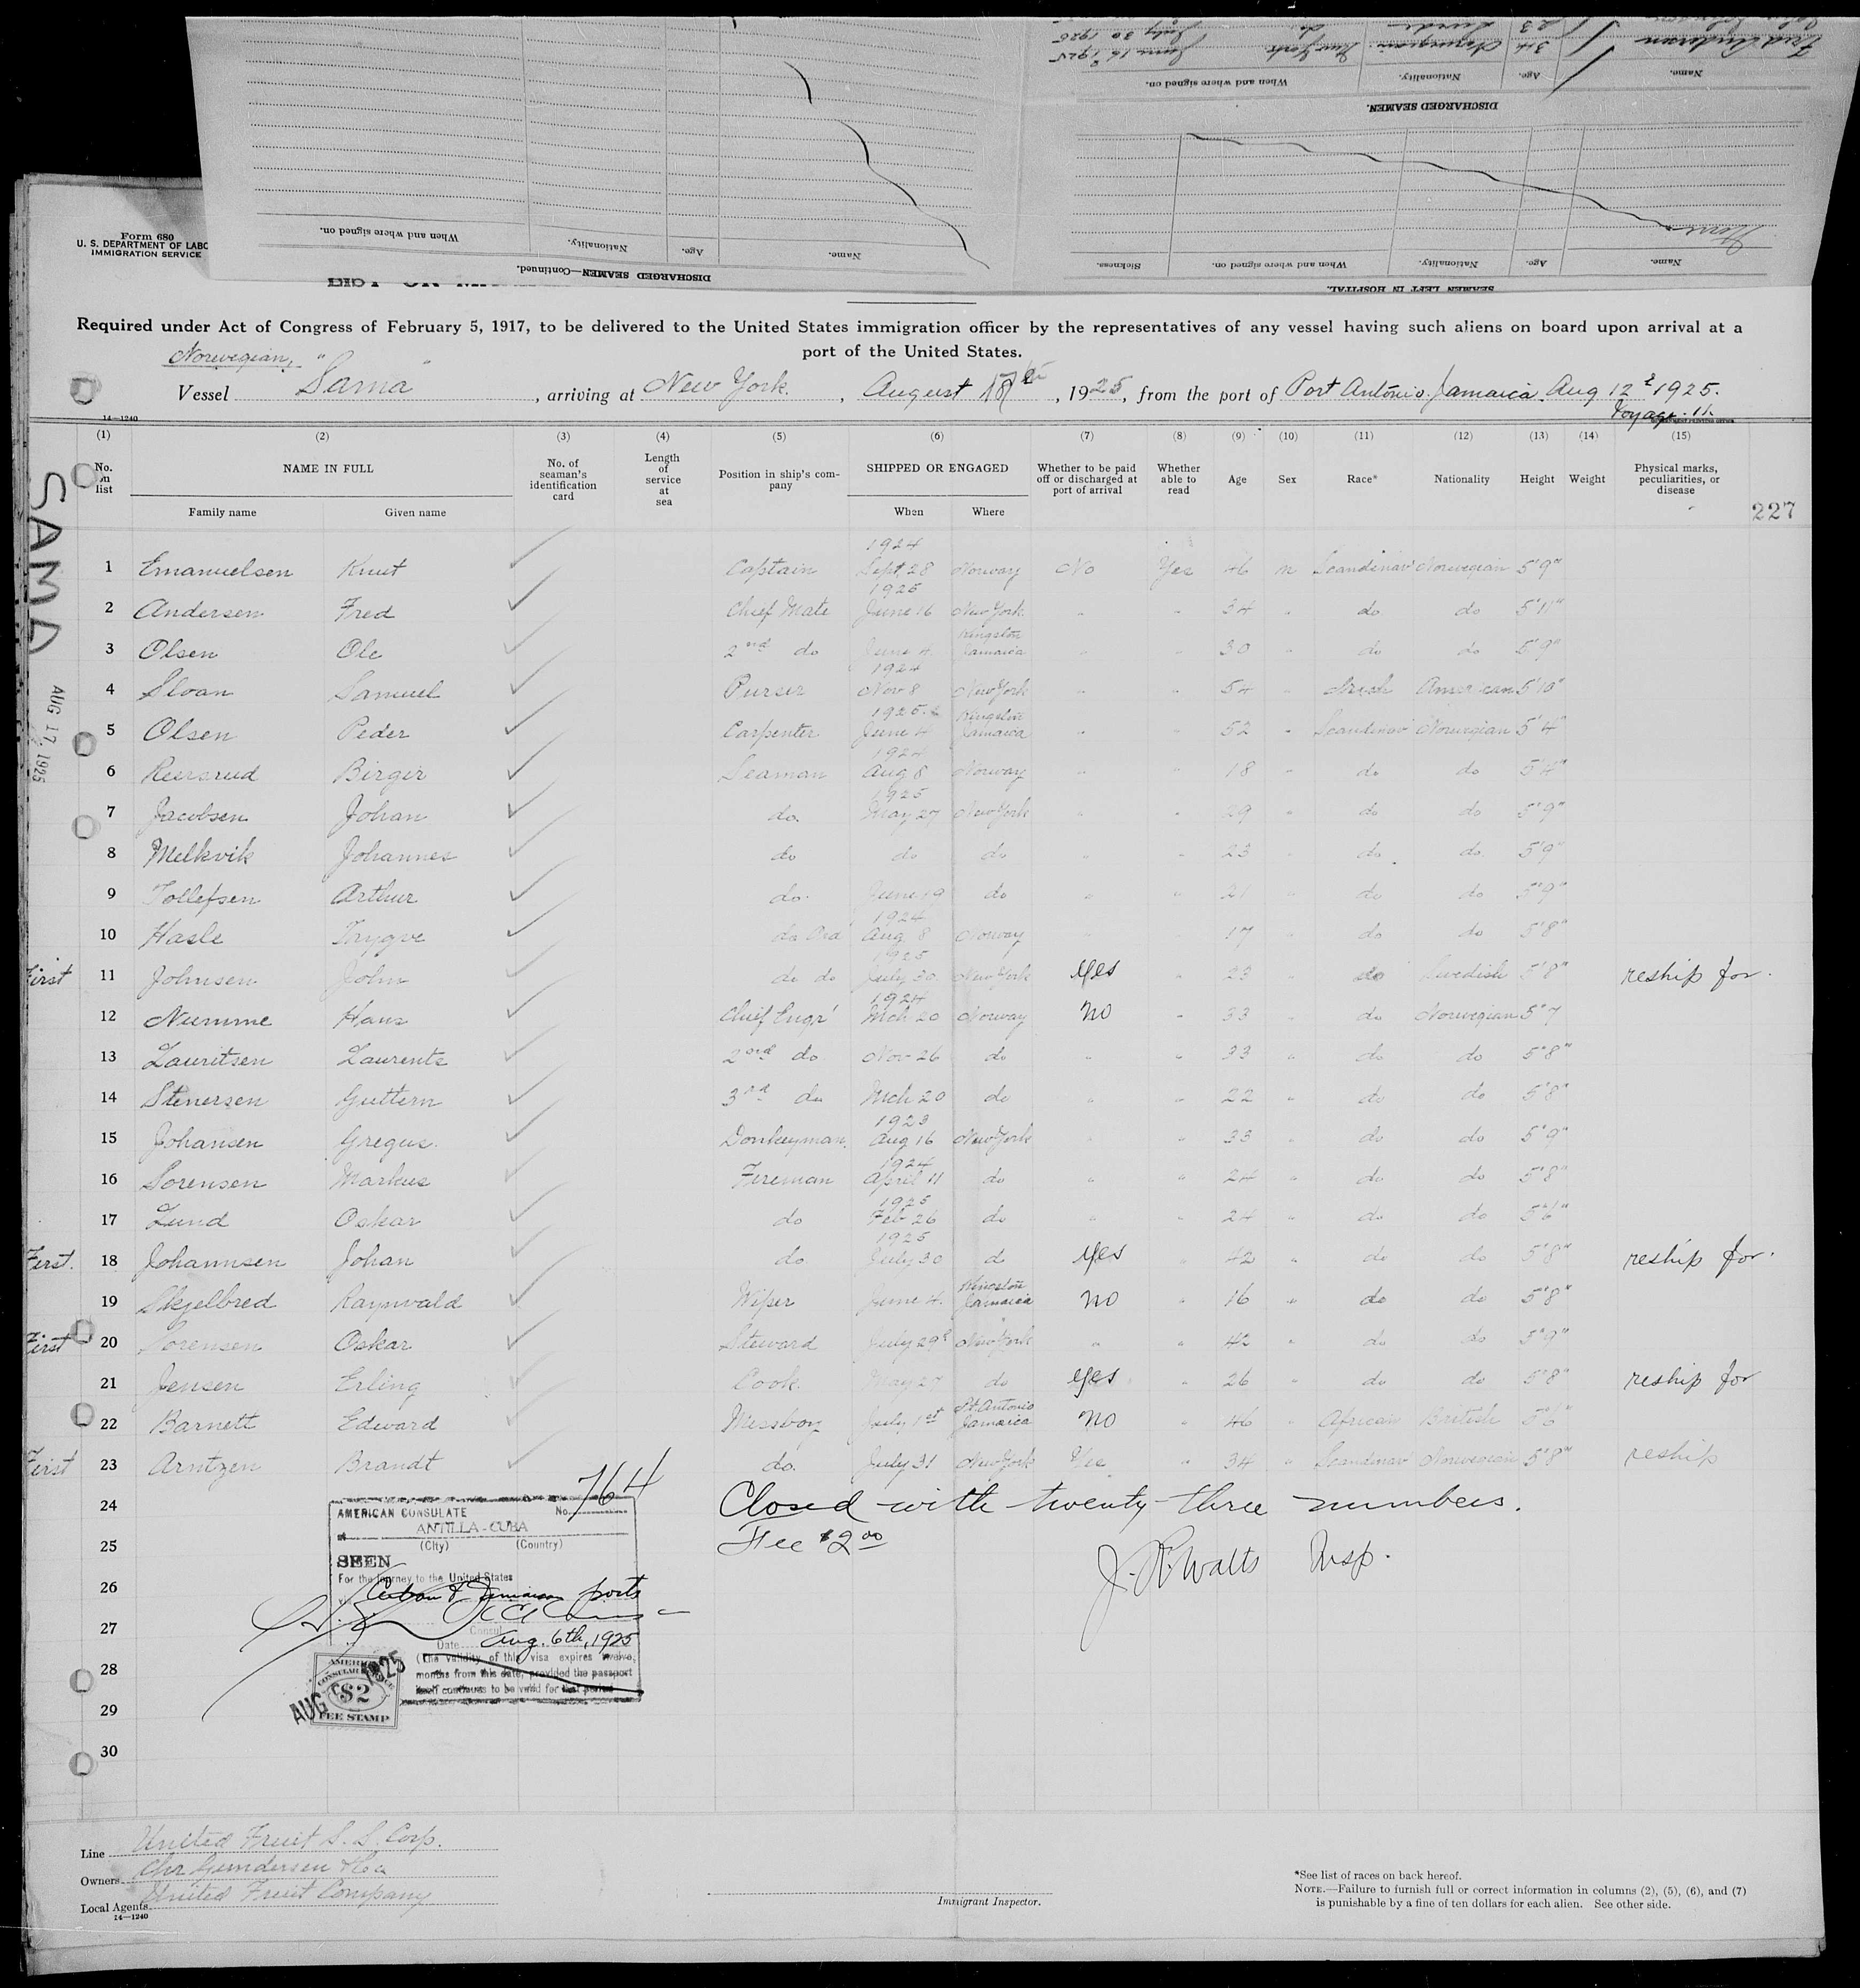 DISCHARGED SEAMEN—Continued.
Name. Age. Nationality. When and where signed on.
SEAMEN LEFT IN HOSPITAL.
Name. Age. Nationality. When and where signed on. Sickness.
None
DISCHARGED SEAMEN.
Name. Age. Nationality. When and where signed on.
Fred Andersen 34 Norwegian New York June 16th 1925
23 do July 30 1925
Form 680
U. S. DEPARTMENT OF LABO
IMMIGRATION SERVICE
Required under Act of Congress of February 5, 1917, to be delivered to the United States immigration officer by the representatives of any vessel having such aliens on board upon arrival at a
port of the United States.
Norwegian,
Vessel "Sama", arriving at New York, August 17th, 1925, from the port of Port Antonio. Jamaica. Aug 12th 1925.
Voyage. 11.
14—1240
(1) (2) (3) (4) (5) (6) (7) (8) (9) (10) (11) (12) (13) (14) (15)
No. on list
NAME IN FULL
Family name Given name
No. of seaman's identification card
Length of service at sea
Position in ship's company
SHIPPED OR ENGAGED
When Where
Whether to be paid off or discharged at port of arrival
Whether able to read
Age Sex Race* Nationality Height Weight
Physical marks, peculiarities, or disease
227
SAMA
AUG 17, 1925
1 Emanuelsen Knut Captain 1924 Sept 28 Norway No Yes 46 m Scandinav Norwegian 5'9"
2 Andersen Fred Chief Mate 1925 June 16 New York " " 34 " do do 5'11"
3 Olsen Ole 2nd do June 4 Kingston Jamaica " " 30 " do do 5'9"
4 Sloan Samuel Purser 1924 Nov 8 New York " " 54 " Irish American 5'10"
5 Olsen Peder Carpenter 1925 June 4 Kingston Jamaica " " 52 " Scandinav Norwegian 5'4"
6 Reursrud Birger Seaman 1924 Aug 8 Norway " " 18 " do do 5'4"
7 Jacobsen Johan do. 1925 May 27 New York " " 29 " do do 5'9"
8 Melkvik Johannes do do do " " 23 " do do 5'9"
9 Tollefsen Arthur do. June 19 do " " 21 " do do 5'9"
10 Hasle Trygve do Ord 1924 Aug 8 Norway 17 " do do 5'8"
First 11 Johnsen John do do 1925 July 30 New York yes " 23 " do Swedish 5'8" reship for.
12 Numme Hans Chief Engr 1924 Mch 20 Norway no " 33 " do Norwegian 5'7
13 Lauritsen Laurentz 2ond do Nov 26 do " " 33 " do do 5'8"
14 Stenersen Guttern 3rd do Mch 20 do " " 22 " do do 5'8"
15 Johansen Gregus. Donkeyman. 1923 Aug 16 New York " 33 " do do 5'9"
16 Sorensen Markus Fireman 1924 April 11 do " " 24 " do do 5'8"
17 Lund Oskar do 1925 Feb 26 do " " 24 " do do 5'6"
First. 18 Johannsen Johan do 1925 July 30 d yes " 42 " do do 5'8" reship for.
19 Skjelbred Raynvald Wiper June 4. Kingston Jamaica no " 16 " do do 5'8"
First 20 Sorensen Oskar Steward July 29th New York " " 42 " do do 5'9"
21 Jensen Erling Cook. May 27 do yes " 26 " do do 5'8" reship for
22 Barnett Edward Messboy July 1st Pt. Antonio Jamaica no " 46 " African British 5'6"
First 23 Arntzen Brandt do. July 31 New York Yes " 34 " Scandinav Norwegian 5'8" reship
24 Closed with twenty-three numbers.
25 Fee $2.00
J. R. Watts Insp.
26
27
28
29
30
AMERICAN CONSULATE No. 764
at ANTILLA-CUBA
(City) (Country)
SEEN
For the journey to the United States
via Cuban & Jamaican ports
Consul
Date Aug. 6th, 1925
(The validity of this visa expires twelve
months from this date, provided the passport
itself continues to be valid for that period
AMERICAN CONSULAR SERVICE
$2
FEE STAMP
AUG 1925
Line United Fruit S. S. Corp.
Owners Chr Gundersen & Co
Local Agents United Fruit Company
14—1240
Immigrant Inspector.
*See list of races on back hereof.
NOTE.—Failure to furnish full or correct information in columns (2), (5), (6), and (7)
is punishable by a fine of ten dollars for each alien. See other side.